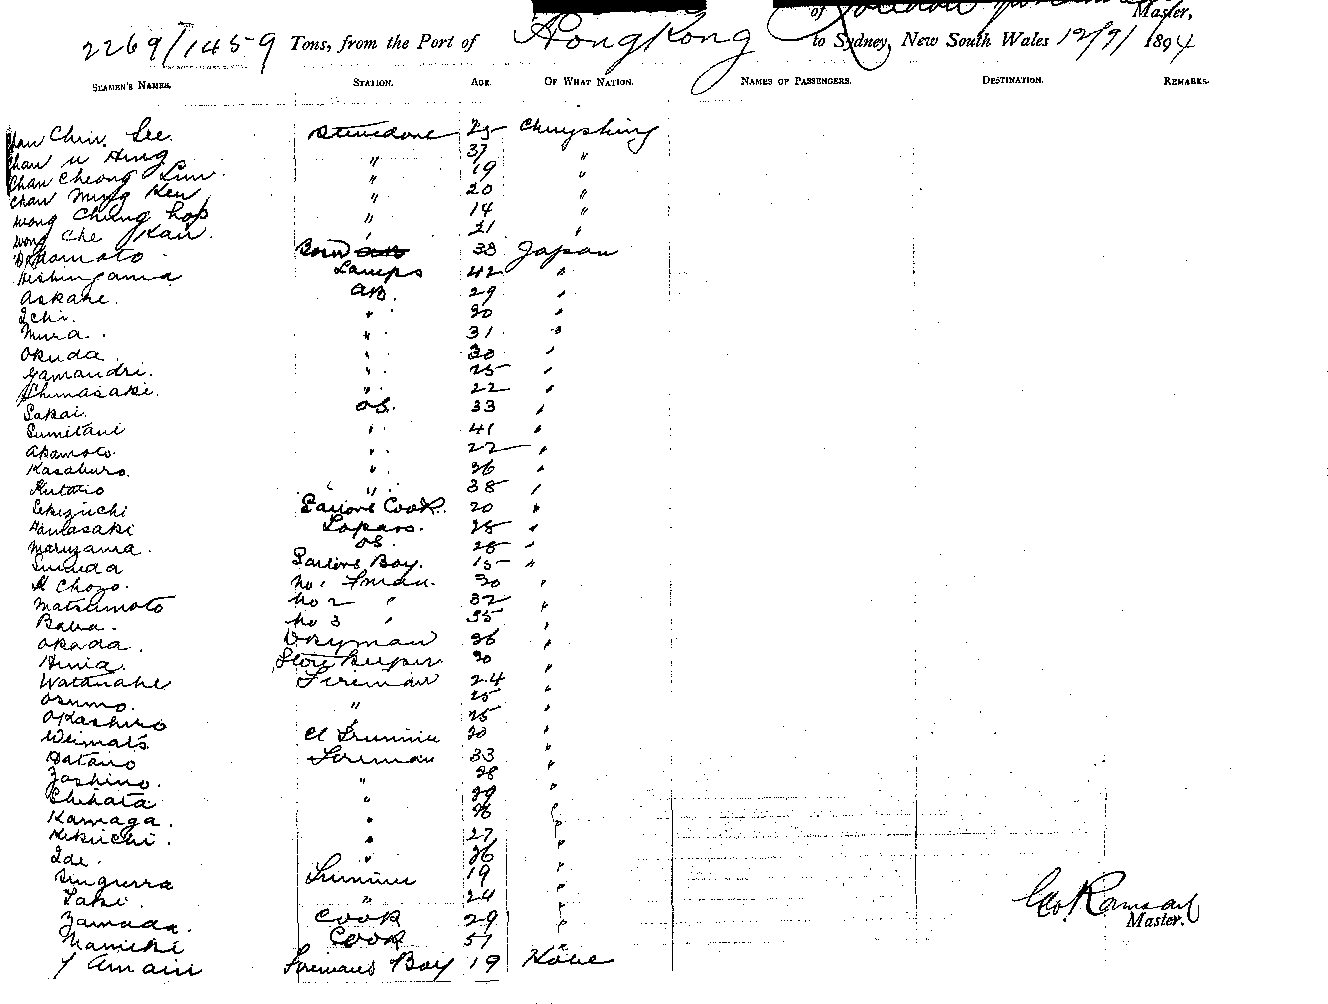 of Master,
2269/1459 Tons, from the Port of HongKong to Sydney, New South Wales 12/9/ 1894
SEAMEN'S NAMES. STATION. AGE. OF WHAT NATION. NAMES OF PASSENGERS. DESTINATION. REMARKS.
Chan Chin Lee 25
Chan u Hing " 37 "
Chan Cheong Lun " 19 "
Chan Ming Ken " 20 "
Wong Chung hop " 14 "
Wong Che Kan " 21 "
38 Japan
Lamps 42 "
Askahe. AB. 29 "
Ichi. " 30 "
Mura. " 31 "
Okuda " 30 "
Yamandri. " 25 "
Shimasaki. " 22 "
Sakai. OS. 33 "
Sumitani " 41 "
Akamoto. " 22 "
Kasaburo. " 36 "
" 38 "
Sekiguchi Sailors Cook. 20 "
28 "
Maruyama. OS. 28 "
Sumida Sailors Boy. 15 "
No 1 Fman. 30 "
Matsumoto No 2 " 32 "
Baba. No 3 " 35 "
Okada. 36 "
Store Keeper 30 "
Watanabe Fireman 24 "
Osumo. " 25 "
Okashiro " 25 "
30 "
Fireman 33 "
Yoshino. " 28 "
Chihata " 29 "
Kamaga. " 26 "
Kikuchi. " 27 "
Ide. " 36 "
Trimmer 19 "
Taki. " 24 "
Yamada. Cook 29 "
Cook 51 "
Y Amain Firemans Boy 19 Kobe
Geo Ramsay
Master.